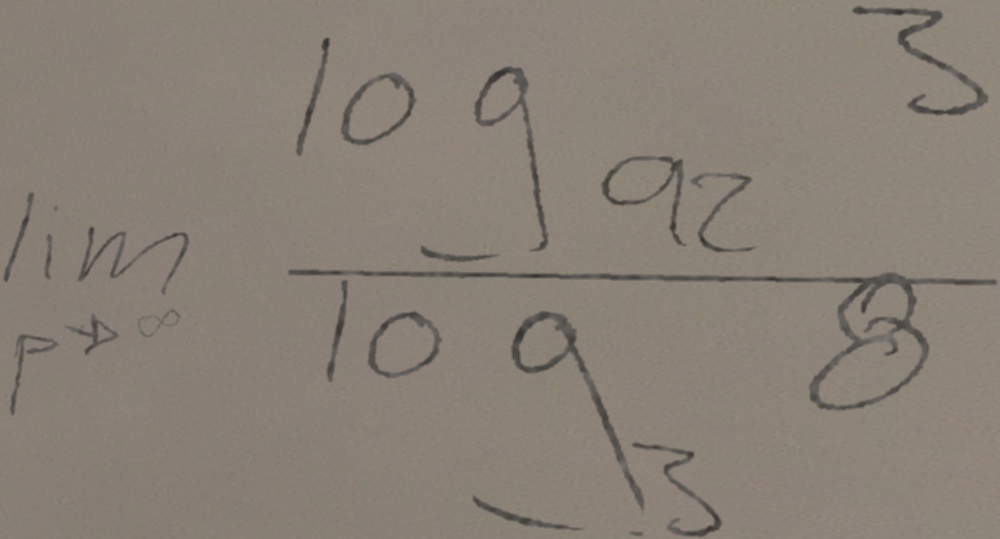 \lim_{p \to \infty} \frac{\log_{92} 3}{\log_{3} 8}